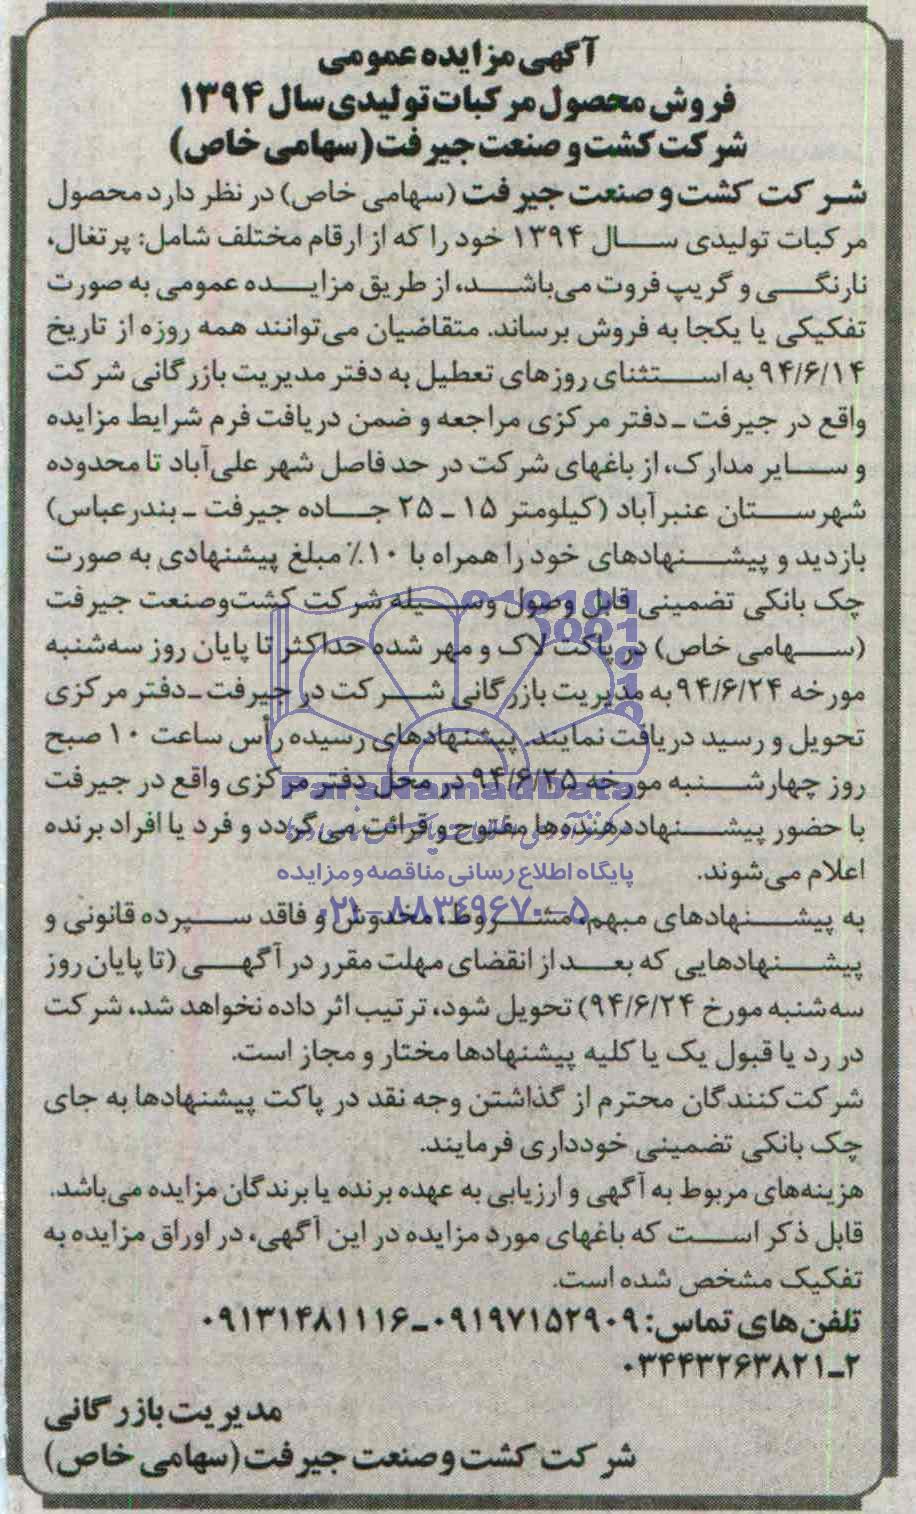 آگهی مزایده عمومی
فروش محصول مرکبات تولیدی سال ۱۳۹۴
شرکت کشت و صنعت جیرفت (سهامی خاص)
شرکت کشت و صنعت جیرفت (سهامی خاص) در نظر دارد محصول
مرکبات تولیدی سال ۱۳۹۴ خود را که از ارقام مختلف شامل: پرتغال،
نارنگی و گریپ فروت می‌باشد، از طریق مزایده عمومی به صورت
تفکیکی یا یکجا به فروش برساند. متقاضیان می‌توانند همه روزه از تاریخ
۹۴/۶/۱۴ به استثنای روزهای تعطیل به دفتر مدیریت بازرگانی شرکت
واقع در جیرفت ـ دفتر مرکزی مراجعه و ضمن دریافت فرم شرایط مزایده
و سایر مدارک، از باغهای شرکت در حد فاصل شهر علی‌آباد تا محدوده
شهرستان عنبرآباد (کیلومتر ۱۵ ـ ۲۵ جاده جیرفت ـ بندرعباس)
بازدید و پیشنهادهای خود را همراه با ۱۰٪ مبلغ پیشنهادی به صورت
چک بانکی تضمینی قابل وصول وسیله شرکت کشت‌وصنعت جیرفت
(سهامی خاص) در پاکت لاک و مهر شده حداکثر تا پایان روز سه‌شنبه
مورخه ۹۴/۶/۲۴ به مدیریت بازرگانی شرکت در جیرفت ـ دفتر مرکزی
تحویل و رسید دریافت نمایند. پیشنهادهای رسیده رأس ساعت ۱۰ صبح
روز چهارشنبه مورخه ۹۴/۶/۲۵ در محل دفتر مرکزی واقع در جیرفت
ParsNamadData
با حضور پیشنهاددهنده‌ها مفتوح و قرائت می‌گردد و فرد یا افراد برنده
اعلام می‌شوند.
پایگاه اطلاع رسانی مناقصه و مزایده
۰۲۱-۸۸۳۴۹۶۷۰-۵
به پیشنهادهای مبهم، مشروط، مخدوش و فاقد سپرده قانونی و
پیشنهادهایی که بعد از انقضای مهلت مقرر در آگهی (تا پایان روز
سه‌شنبه مورخ ۹۴/۶/۲۴) تحویل شود، ترتیب اثر داده نخواهد شد، شرکت
در رد یا قبول یک یا کلیه پیشنهادها مختار و مجاز است.
شرکت‌کنندگان محترم از گذاشتن وجه نقد در پاکت پیشنهادها به جای
چک بانکی تضمینی خودداری فرمایند.
هزینه‌های مربوط به آگهی و ارزیابی به عهده برنده یا برندگان مزایده می‌باشد.
قابل ذکر است که باغهای مورد مزایده در این آگهی، در اوراق مزایده به
تفکیک مشخص شده است.
تلفن‌های تماس: ۰۹۱۹۷۱۵۲۹۰۹ـ۰۹۱۳۱۴۸۱۱۱۶
۰۳۴۴۳۲۶۳۸۲۱ـ۲
مدیریت بازرگانی
شرکت کشت و صنعت جیرفت (سهامی خاص)